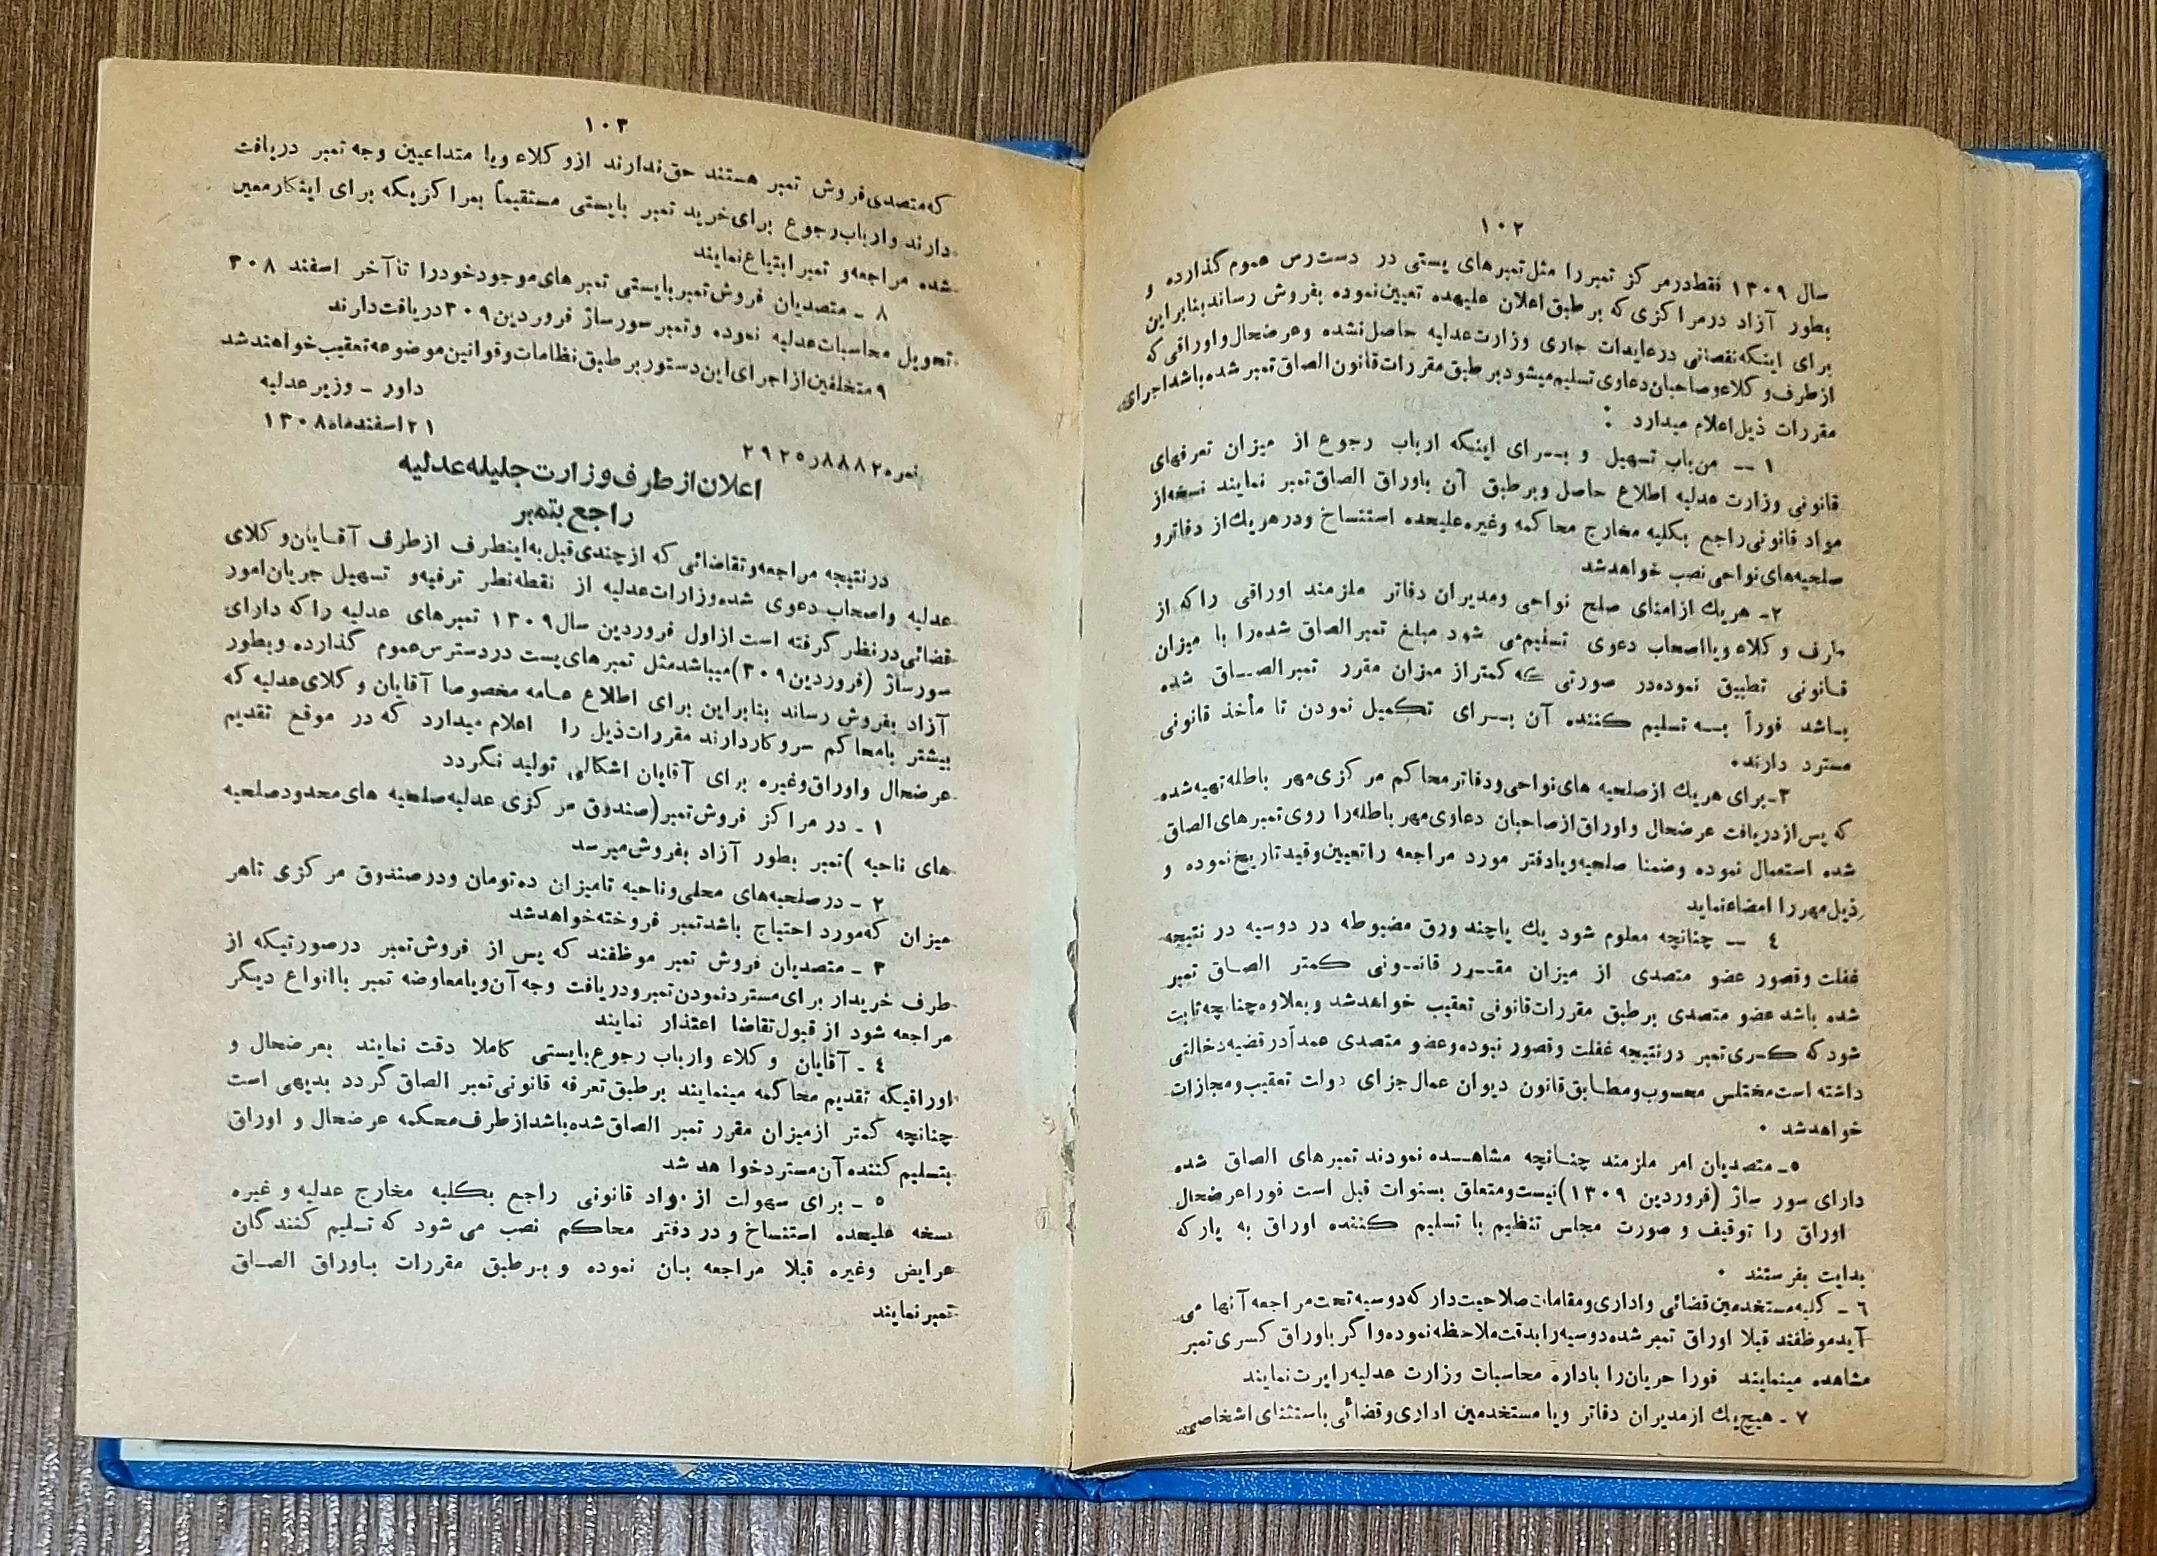 ۱۰۲
سال ۱۳۰۹ فقط در مرکز تمبر را مثل تمبرهای پستی در دسترس عموم گذارده و
بطور آزاد در مراکزی که بر طبق اعلان علیهده تعیین نموده بفروش رساند بنابراین
برای اینکه نقصانی در عایدات جاری وزارت عدلیه حاصل نشده و عرضحال و اوراقی که
از طرف وکلاء و صاحبان دعاوی تسلیم میشود بر طبق مقررات قانون الصاق تمبر شده باشد اجرای
مقررات ذیل اعلام میدارد :
۱ ــ من باب تسهیل و بــرای اینکه ارباب رجوع از میزان تعرفهای
قانونی وزارت عدلیه اطلاع حاصل و بر طبق آن باوراق الصاق تمبر نمایند نسخه از
مواد قانونی راجع بکلیه مخارج محاکمه و غیره علیحده استنساخ و در هر یك از دفاتر و
صلحیه‌های نواحی نصب خواهد شد
۲ـ هریك از امنای صلح نواحی و مدیران دفاتر ملزمند اوراقی را که از
طرف وکلاء و یا اصحاب دعوی تسلیم می شود مبلغ تمبر الصاق شده را با میزان
قـانونی تطبیق نموده در صورتی که کمتر از میزان مقرر تمبر الصــاق شده
بـاشد فوراً بــه تسلیم کننده آن بــرای تکمیل نمودن تا مأخذ قانونی
مسترد دارند.
۳ـ برای هریك از صلحیه های نواحی و دفاتر محاکم مرکزی مهر باطله تهیه شده
که پس از دریافت عرضحال و اوراق از صاحبان دعاوی مهر باطله را روی تمبرهای الصاق
شده استعمال نموده و ضمنا صلحیه و یا دفتر مورد مراجعه را تعیین و قید تاریخ نموده و
ذیل مهر را امضاء نماید
٤ ــ چنانچه معلوم شود یك یا چند ورق مضبوطه در دوسیه در نتیجه
غفلت و قصور عضو متصدی از میزان مقــرر قانــونی کمتر الصـاق تمبر
شده باشد عضو متصدی بر طبق مقررات قانونی تعقیب خواهد شد و بعلاوه چنانچه ثابت
شود که کسری تمبر در نتیجه غفلت و قصور نبوده و عضو متصدی عمداً در قضیه دخالتی
داشته است مختلس محسوب و مطـابق قانون دیوان عمال جزای دولت تعقیب و مجازات
خواهد شد .
۵ـ متصدیان امر ملزمند چنـانچه مشاهــده نمودند تمبرهای الصاق شده
دارای سور ساژ (فروردین ۱۳۰۹) نیست و متعلق بسنوات قبل است فورا عرضحال
اوراق را توقیف و صورت مجلس تنظیم با تسلیم کننده اوراق به پارکه
بدایت بفرستند .
٦ ـ کلیه مستخدمین قضائی و اداری و مقامات صلاحیت‌دار که دوسیه تحت مراجعه آنها می
آید موظفند قبلا اوراق تمبر شده دوسیه را بدقت ملاحظه نموده و اگر باوراق کسری تمبر
مشاهده مینمایند فورا جریان را باداره محاسبات وزارت عدلیه راپرت نمایند
۷ ـ هیچ یك از مدیران دفاتر و یا مستخدمین اداری و قضائی باستثنای اشخاصی
۱۰۳
که متصدی فروش تمبر هستند حق ندارند از وکلاء و یا متداعیین وجه تمبر دریافت
دارند و ارباب رجوع برای خرید تمبر بایستی مستقیماً بمراکزیکه برای اینکار معین
شده مراجعه و تمبر ابتیاع نمایند
۸ ـ متصدیان فروش تمبر بایستی تمبرهای موجود خود را تا آخر اسفند ۳۰۸
تحویل محاسبات عدلیه نموده و تمبر سورساژ فروردین ۳۰۹ دریافت دارند
۹ متخلفین از اجرای این دستور بر طبق نظامات و قوانین موضوعه تعقیب خواهند شد
داور ـ وزیر عدلیه
نمره ۸۸۸۲ر۲۹۲۵
۲۱ اسفند ماه ۱۳۰۸
اعلان از طرف وزارت جلیله عدلیه
راجع بتمبر
در نتیجه مراجعه و تقاضائی که از چندی قبل به اینطرف از طرف آقـایان وکلای
عدلیه و اصحاب دعوی شده وزارت عدلیه از نقطه نظر ترفیه و تسهیل جریان امور
قضائی در نظر گرفته است از اول فروردین سال ۱۳۰۹ تمبرهای عدلیه را که دارای
سورساژ (فروردین ۳۰۹) میباشد مثل تمبرهای پست در دسترس عموم گذارده و بطور
آزاد بفروش رساند بنابراین برای اطلاع عـامه مخصوصا آقایان وکلای عدلیه که
بیشتر با محاکم سر و کار دارند مقررات ذیل را اعلام میدارد که در موقع تقدیم
عرضحال و اوراق و غیره برای آقایان اشکالی تولید نگردد
۱ ـ در مراکز فروش تمبر (صندوق مرکزی عدلیه صلحیه های محدود صلحیه
های ناحیه) تمبر بطور آزاد بفروش میرسد
۲ ـ در صلحیه‌های محلی و ناحیه تا میزان ده تومان و در صندوق مرکزی تا هر
میزان که مورد احتیاج باشد تمبر فروخته خواهد شد
۳ ـ متصدیان فروش تمبر موظفند که پس از فروش تمبر در صورتیکه از
طرف خریدار برای مسترد نمودن تمبر و دریافت وجه آن و یا معاوضه تمبر با انواع دیگر
مراجعه شود از قبول تقاضا اعتذار نمایند
٤ ـ آقایان وکلاء و ارباب رجوع بایستی کاملا دقت نمایند بعرضحال و
اوراقیکه تقدیم محاکمه مینمایند بر طبق تعرفه قانونی تمبر الصاق گردد بدیهی است
چنانچه کمتر از میزان مقرر تمبر الصاق شده باشد از طرف محکمه عرضحال و اوراق
بتسلیم کننده آن مسترد خوا هد شد
۵ ـ برای سهولت از مواد قانونی راجع بکلیه مخارج عدلیه و غیره
نسخه علیحده استنساخ و در دفتر محاکم نصب می شود که تسلیم کنندگان
عرایض و غیره قبلا مراجعه بـان نموده و بـرطبق مقررات بـاوراق الصـاق
تمبر نمایند